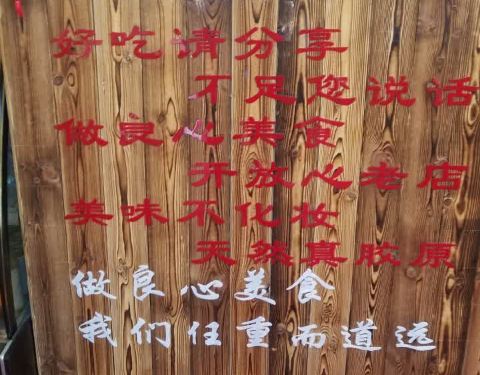 好吃请分享
不足您说话
做良心美食
开放心老店
美味不化妆
天然真胶原
做良心美食
我们任重而道远